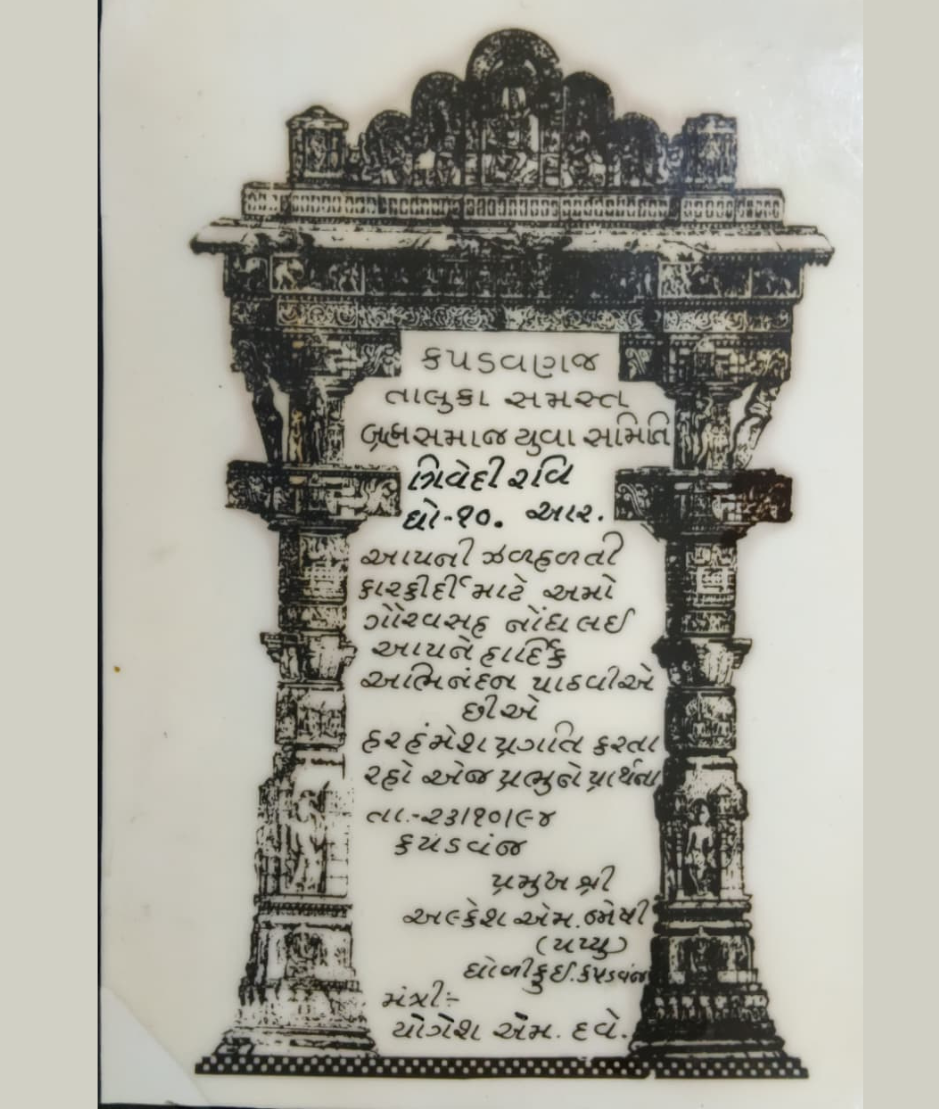 કપડવણજ
તાલુકા સમસ્ત
બ્રહ્મસમાજ યુવા સમિતિ
ત્રિવેદી રવિ
ધો-૧૦. આર.
આપની ઝળહળતી
કારકીર્દી માટે અમો
ગૌરવસહ નોંધ લઈ
આપને હાર્દિક
અભિનંદન પાઠવીએ
છીએ
હરહંમેશ પ્રગતિ કરતા
રહો એજ પ્રભુને પ્રાર્થના
તા.-૨૩/૧૦/૯૪
કપડવંજ
પ્રમુખ શ્રી
અલ્કેશ એમ. જોષી
(પપ્પુ)
ધોળીકુઈ. કપડવંજ
મંત્રી:-
યોગેશ એમ. દવે.